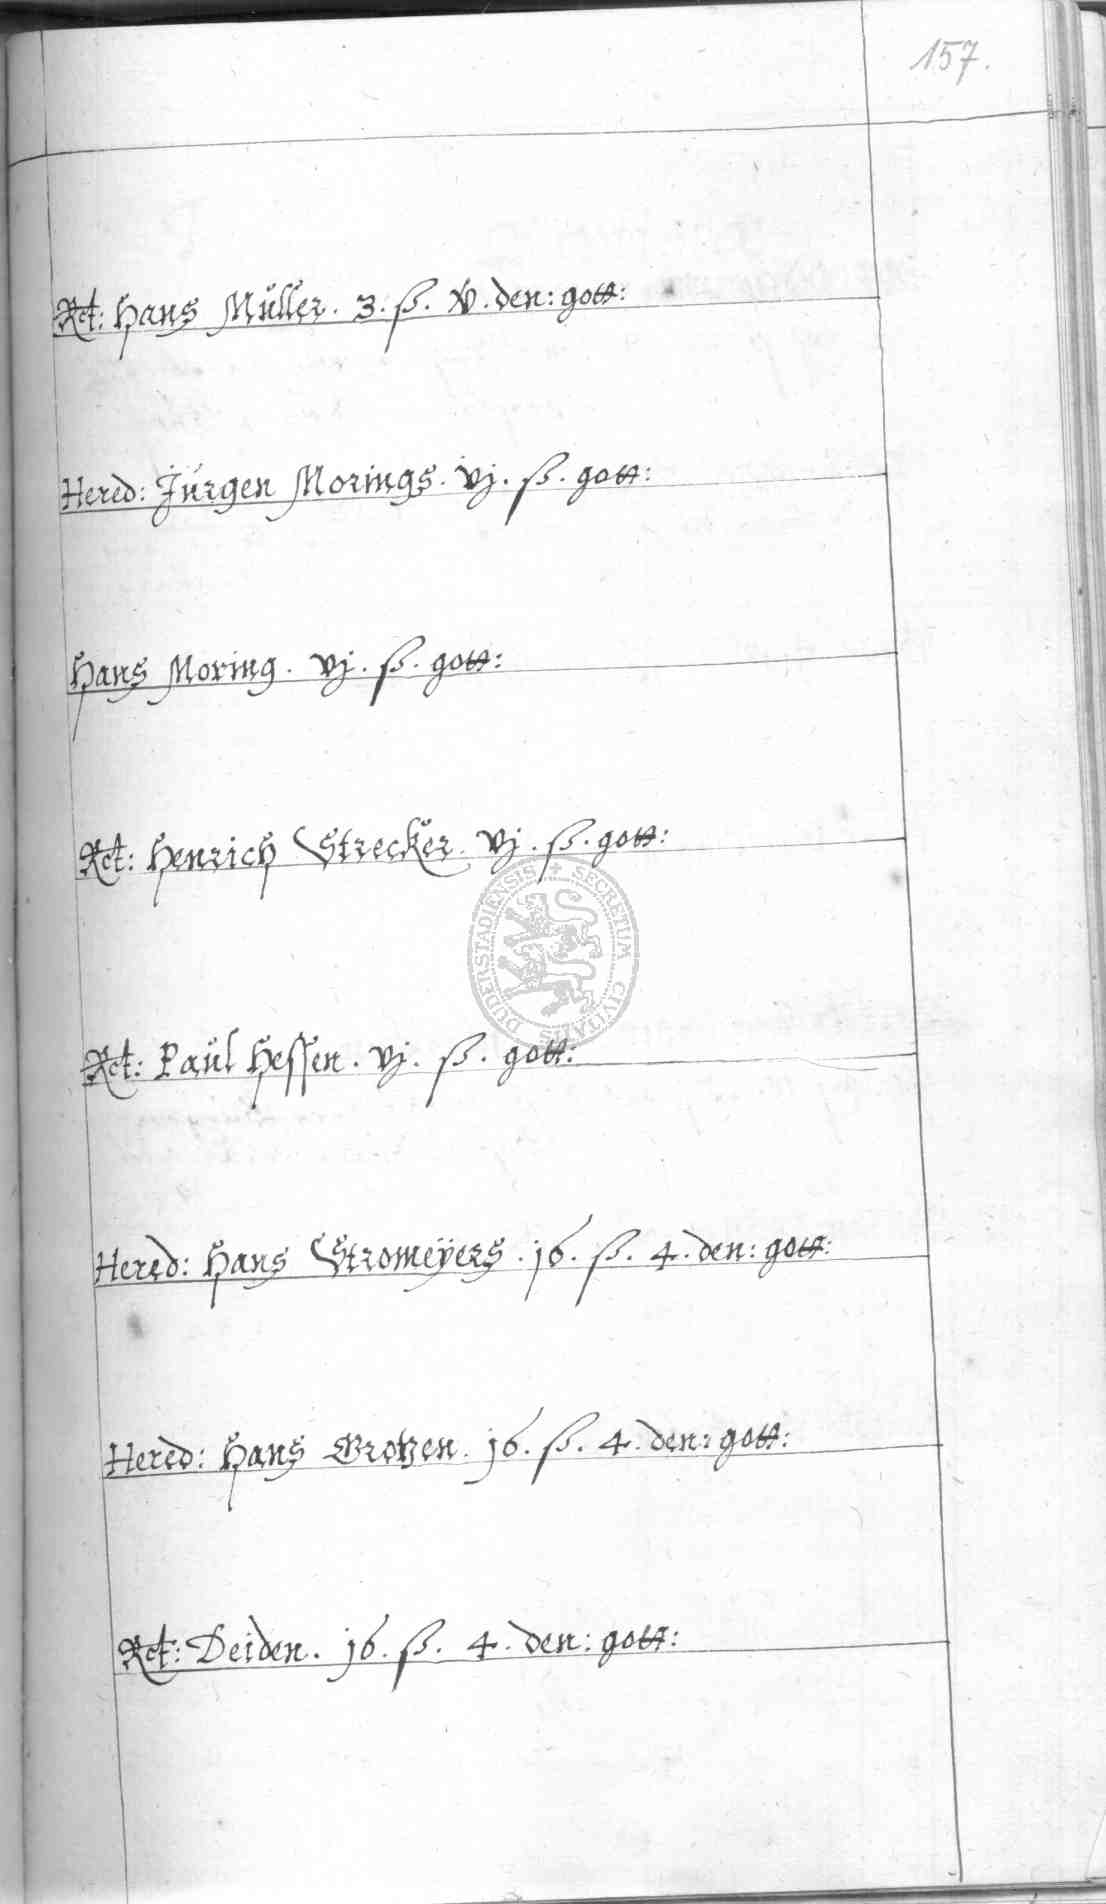 157.
Rct: Hans Müller. 3. ß. V. den: gott:
Hered: Jürgen Morings. vj. ß. gott:
Hans Moring. vj. ß. gott:
Rct: Henrich Strecker. vj. ß. gott:
SECRETUM CIVITATIS DUDERSTADIENSIS
Rct: Paul Hessen. vj. ß. gott:
Hered: Hans Stromeÿers. 16. ß. 4. den: gott:
Hered: Hans 16. ß. 4. den: gott:
Rct: Deiden. 16. ß. 4. den: gott: